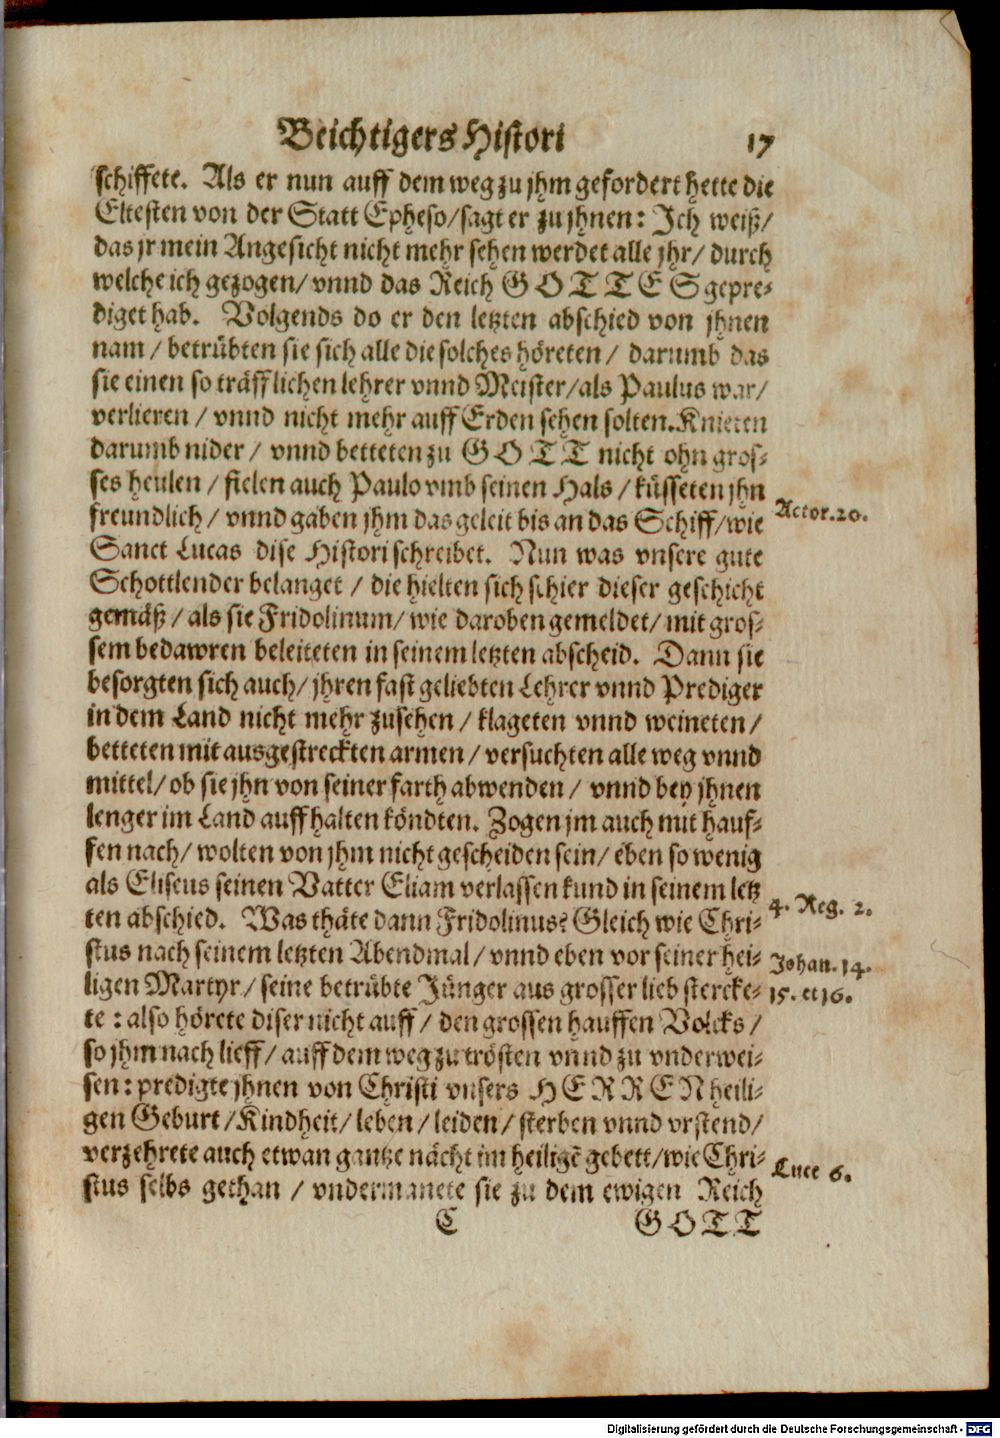 Beichtigers Histori 17
schiffete. Als er nun auff dem weg zu jhm gefordert hette die
Eltesten von der Statt Epheso/sagt er zu jhnen: Ich weiß/
das jr mein Angesicht nicht mehr sehen werdet alle jhr/ durch
welche ich gezogen/ vnnd das Reich GOTTES gepre-
diget hab. Volgends do er den letzten abschied von jhnen
nam / betrübten sie sich alle die solches höreten / darumb das
sie einen so träfflichen lehrer vnnd Meister/als Paulus war/
verlieren / vnnd nicht mehr auff Erden sehen solten. Knieten
darumb nider / vnnd betteten zu GOTT nicht ohn gros-
ses heulen / fielen auch Paulo vmb seinen Hals / küsseten jhn
freundlich / vnnd gaben jhm das geleit bis an das Schiff/wie
Actor. 20.
Sanct Lucas dise Histori schreibet. Nun was vnsere gute
Schottlender belanget / die hielten sich schier dieser geschicht
gemäß / als sie Fridolinum/ wie daroben gemeldet/ mit gros-
sem bedawren beleiteten in seinem letzten abscheid. Dann sie
besorgten sich auch/ jhren fast geliebten Lehrer vnnd Prediger
in dem Land nicht mehr zusehen / klageten vnnd weineten /
betteten mit ausgestreckten armen / versuchten alle weg vnnd
mittel/ ob sie jhn von seiner farth abwenden / vnnd bey jhnen
lenger im Land auffhalten köndten. Zogen jm auch mit hauf-
fen nach/ wolten von jhm nicht gescheiden sein/ eben so wenig
als Eliseus seinen Vatter Eliam verlassen kund in seinem letz
4. Reg. 2.
ten abschied. Was thäte dann Fridolinus? Gleich wie Chri-
stus nach seinem letzten Abendmal / vnnd eben vor seiner hei-
Johan. 14.
ligen Martyr / seine betrübte Jünger aus grosser lieb stercke-
15. et 16.
te : also hörete diser nicht auff / den grossen hauffen Volcks /
so jhm nach lieff / auff dem weg zu trösten vnnd zu vnderwei-
sen : predigte jhnen von Christi vnsers HERREN heili-
gen Geburt / Kindheit / leben / leiden / sterben vnnd vrstend/
verzehrete auch etwan gantze nächt im heiligē gebett/wie Chri-
Luce 6.
stus selbs gethan / vndermanete sie zu dem ewigen Reich
C GOTT
Digitalisierung gefördert durch die Deutsche Forschungsgemeinschaft - DFG